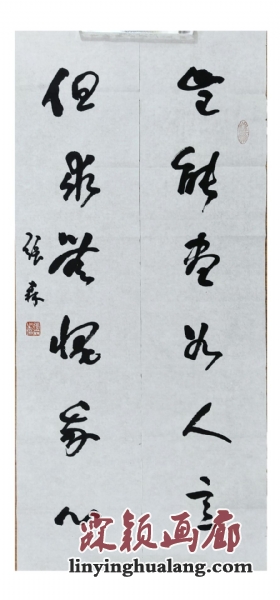 豈能盡如人意
但求無愧我心
張森
霖颖画廊
linyinghualang.com